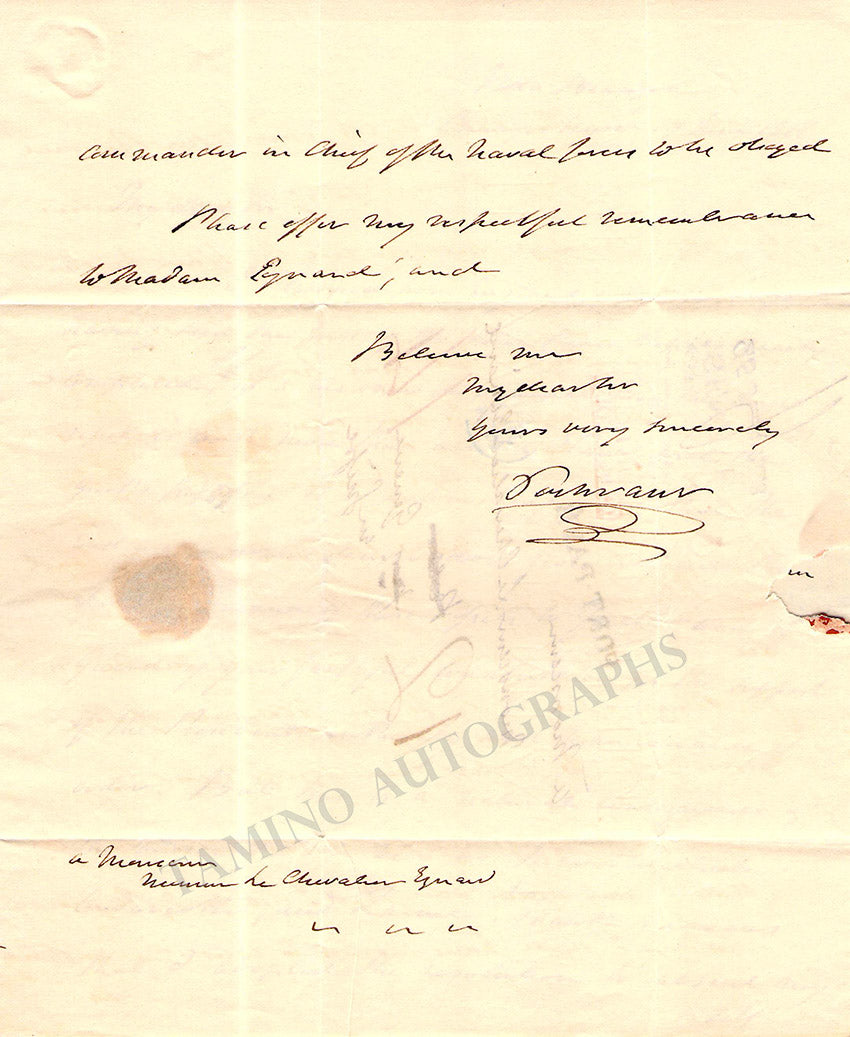 Commander in Chief of the Naval forces to be obeyed
Please offer my respectful remembrances
to Madam Eynard, and
Believe me
My dear Sir
Yours very sincerely
Cochrane
TAMINO AUTOGRAPHS
a Monsieur
Monsieur Le Chevalier Eynard